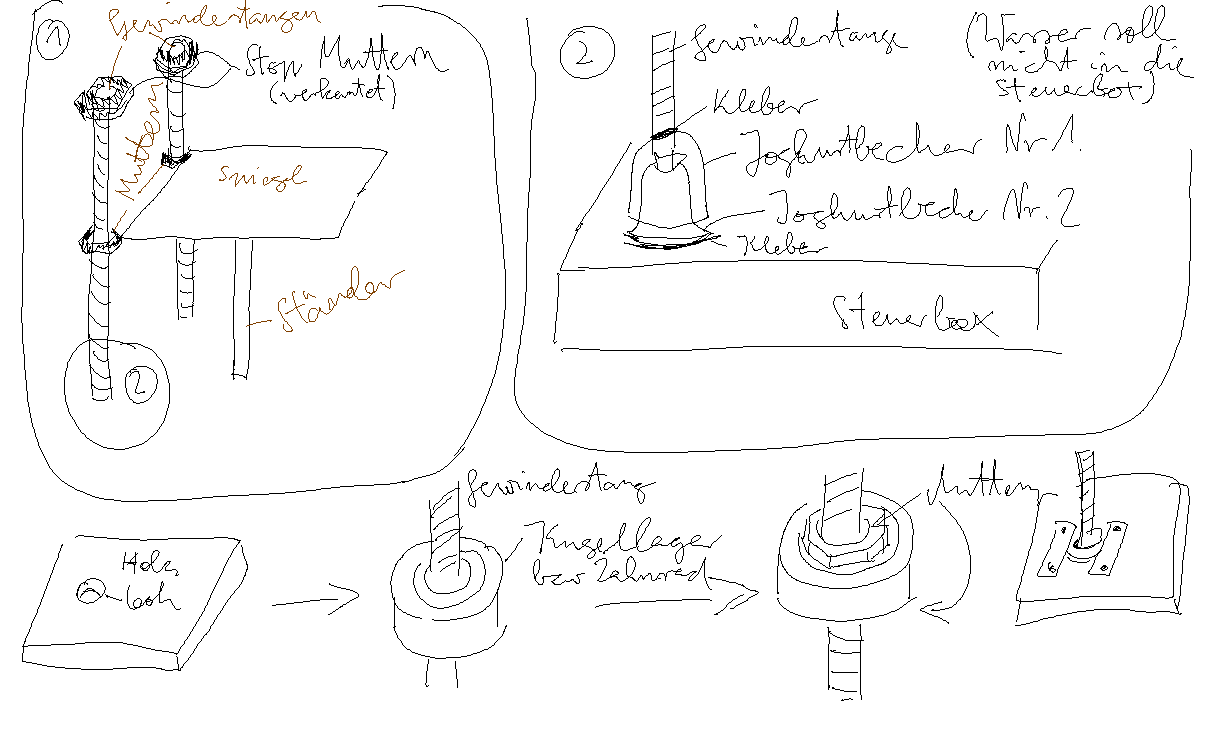 1
Gewinderstangen
Stop Muttern
(verkantet)
Muttern
Spiegel
Ständer
2
2
Gewinderstange
(Wasser soll
nicht in die
Steuerbox)
Kleber
Joghurtbecher Nr 1.
Joghurtbecher Nr. 2
Kleber
Steuerbox
Holz
Gewinderstang
Kugellager
bzw Zahnrad
Muttern